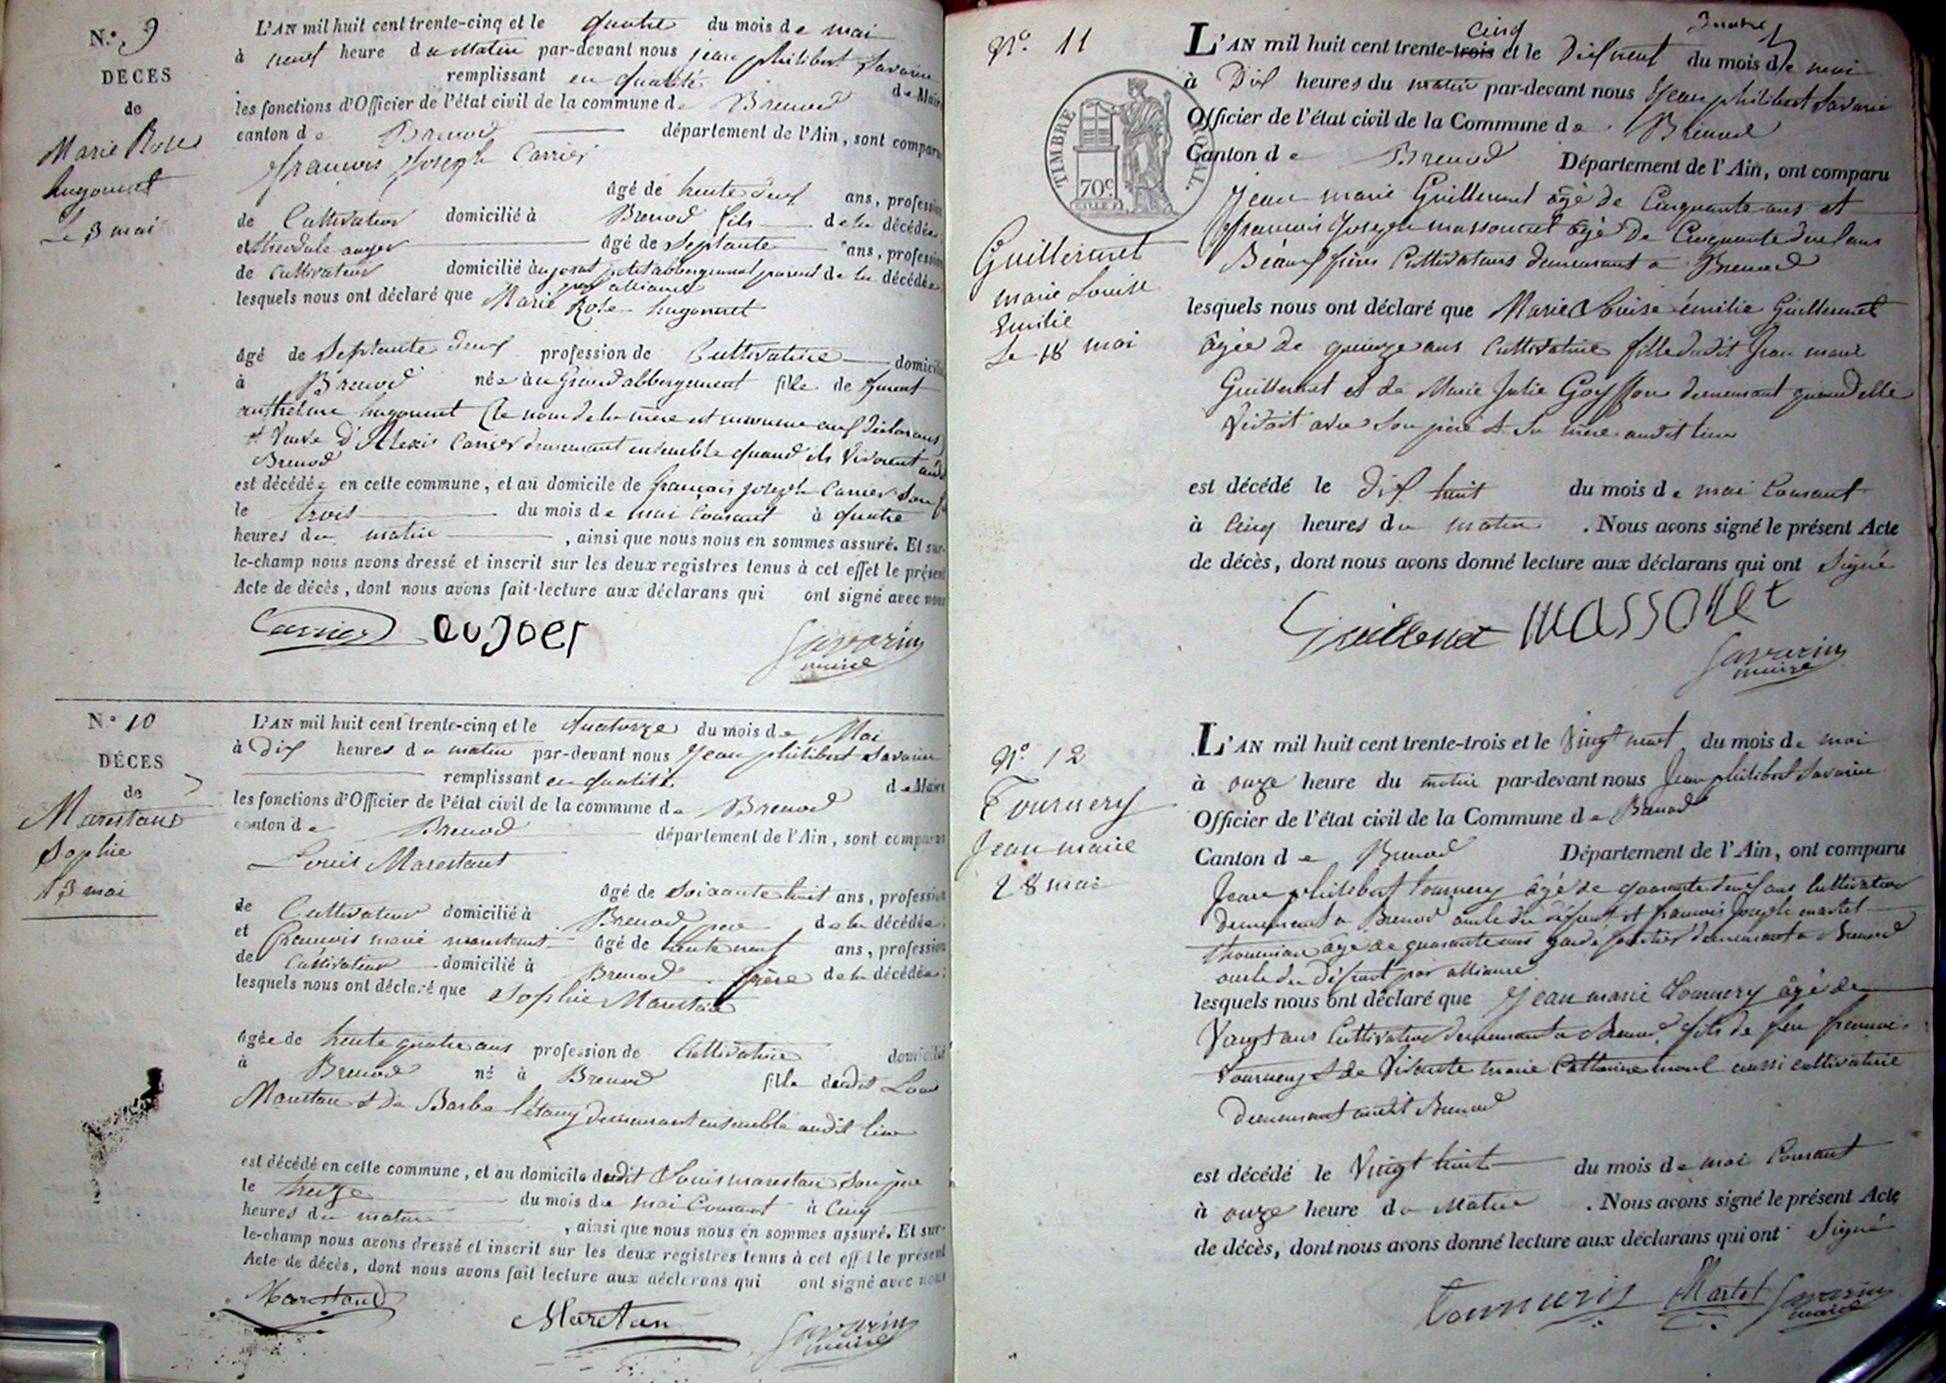 N.° 9
DÉCÈS
de
Marie Rose
hugonnet
Le 3 mai
L'AN mil huit cent trente-cinq et le quatre du mois de mai
à neuf heure du matin par-devant nous jean philibert Savarin
remplissant en qualité de Maire
les fonctions d'Officier de l'état civil de la commune de Brenod
canton de Brenod département de l'Ain, sont comparu
françois Joseph Carrier
âgé de trente deux ans, profession
de Cultivateur domicilié à Brenod fils de la décédée
et auger âgé de septante ans, profession
de cultivateur domicilié petit abbergement parent de la décédée
par alliance
lesquels nous ont déclaré que Marie Rose hugonnet
âgé de septante deux profession de Cultivatrice domicilié
à Brenod née au Grand abbergement fille de
anthelme hugonnet (le nom de la mère est inconnu aux déclarans)
et Veuve d'Alexis Carrier demeurant ensemble quand ils vivoient
Brenod
est décédée en cette commune, et au domicile de françois joseph Carrier son
le trois du mois de mai Courant à quatre
heures du matin, ainsi que nous nous en sommes assuré. Et sur-
le-champ nous avons dressé et inscrit sur les deux registres tenus à cet effet le présent
Acte de décès, dont nous avons fait lecture aux déclarans qui ont signé avec nous
Carrier aujoer Savarin
maire
N.° 10
DÉCÈS
de
Marestans
Sophie
13 mai
L'AN mil huit cent trente-cinq et le quatorze du mois de Mai
à dix heures du matin par-devant nous Jean philibert Savarin
remplissant en qualité de Maire
les fonctions d'Officier de l'état civil de la commune de Brenod
canton de Brenod département de l'Ain, sont comparus
Louis Marestant
âgé de soixante huit ans, profession
de Cultivateur domicilié à Brenod, père de la décédée
et françois marie marestant âgé de trente neuf ans, profession
de Cultivateur domicilié à Brenod frère de la décédée
lesquels nous ont déclaré que Sophie Marestan
âgée de trente quatre ans profession de Cultivatrice domicilié
à Brenod né à Brenod fille dudit Louis
Marestan et de Barbe létang demeurant ensemble audit lieu
est décédé en cette commune, et au domicile dudit Louis marestan son père
le treize du mois de mai Courant à Cinq
heures du matin, ainsi que nous nous en sommes assuré. Et sur-
le-champ nous avons dressé et inscrit sur les deux registres tenus à cet effet le présent
Acte de décès, dont nous avons fait lecture aux déclarans qui ont signé avec nous
Marestand Maretan Savarin
maire
N.° 11
TIMBRE ROYAL.
70c
Guillermet
marie Louise
Emilie
Le 18 mai
L'AN mil huit cent trente-trois cinq et le Dix neuf du mois de mai
à Dix heures du matin par-devant nous Jean philibert Savarin
Officier de l'état civil de la Commune de Brenod
Canton de Brenod Département de l'Ain, ont comparu
Jean marie Guillermet âgé de Cinquante ans et
françois Joseph massonnet âgé de Cinquante deux ans
Beaux frères Cultivateurs demeurant à Brenod
lesquels nous ont déclaré que Marie Louise émilie Guillermet
âgée de quinze ans Cultivatrice fille dudit Jean marie
Guillermet et de Marie Julie Goyffon demeurant quand elle
Vivoit avec son père et sa mère audit lieu
est décédé le dix huit du mois de mai Courant
à Cinq heures du matin. Nous avons signé le présent Acte
de décès, dont nous avons donné lecture aux déclarans qui ont Signé
Guillermet massonet
Savarin
maire
N.° 12
Tournery
Jean marie
28 mai
L'AN mil huit cent trente-trois et le Vingt neuf du mois de mai
à onze heure du matin par-devant nous Jean philibert Savarin
Officier de l'état civil de la Commune de Brenod
Canton de Brenod Département de l'Ain, ont comparu
Jean philibert tournery âgé de quarante deux ans Cultivateur
demeurant à Brenod oncle du défunt et françois Joseph martel
âgé de quarante ans garde forestier demeurant à Brenod
oncle du défunt par alliance
lesquels nous ont déclaré que Jean marie Tournery âgé de
Vingt ans Cultivateur demeurant à Brenod fils de feu françois
tournery et de Vivante marie Catherine monl aussi cultivatrice
demeurant audit Brenod
est décédé le Vingt huit du mois de mai Courant
à onze heure du Matin. Nous avons signé le présent Acte
de décès, dont nous avons donné lecture aux déclarans qui ont Signé
Tournerij Martel Savarin
maire